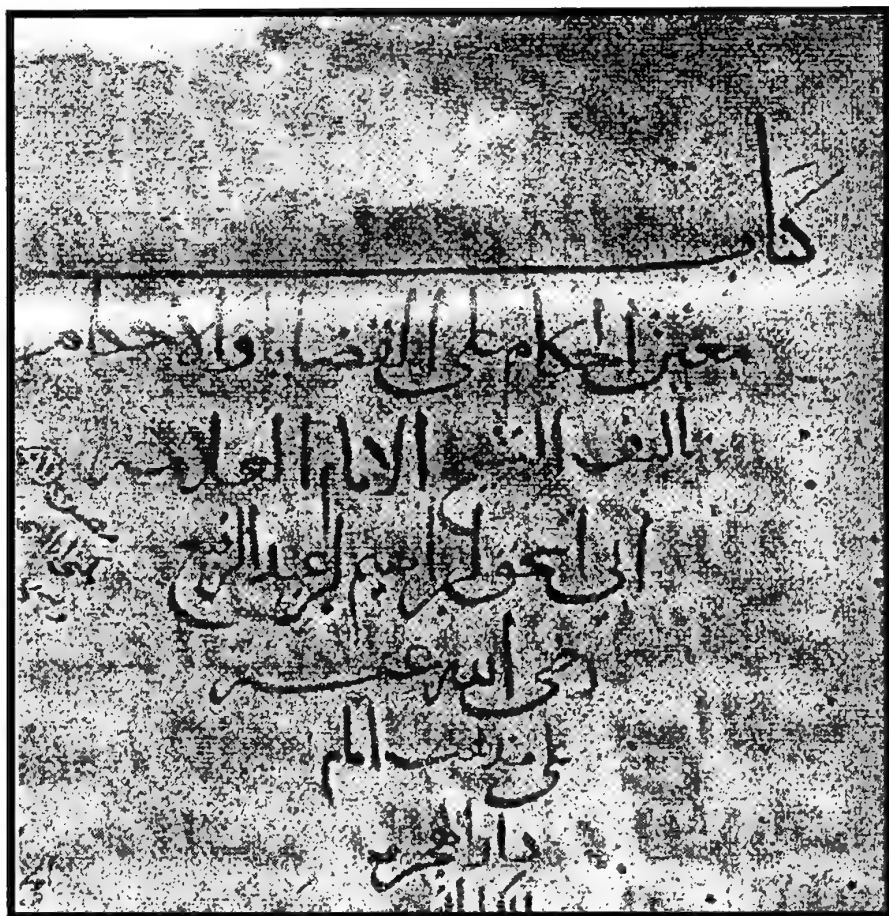 كتاب
معين الحكام على القضايا والاحكام
تاليف الشيخ الامام العلامه
ابى اسحق ابرهيم بن عبد الرفيع
رضى الله عنه
على مذهب امام
دار الهجره